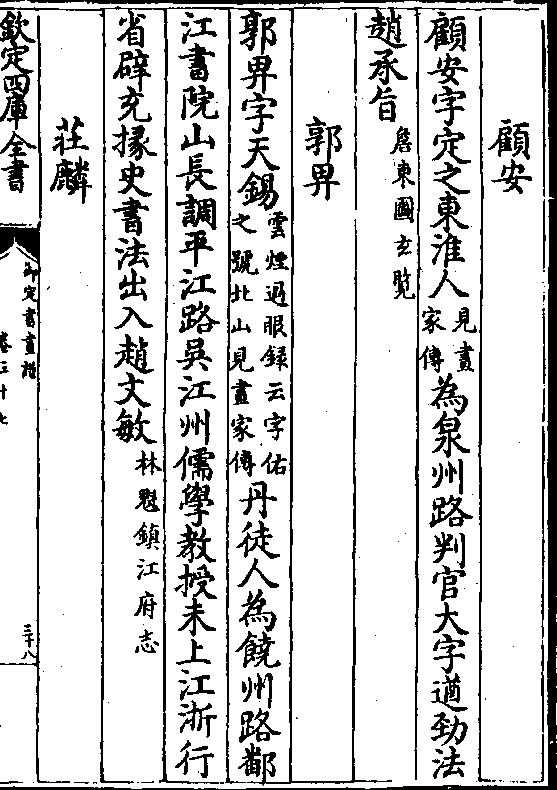 顧安
顧安字定之東淮人見畫家傳為泉州路判官大字遒勁法
趙承旨詹東圖玄覽
郭畀
郭畀字天錫雲煙過眼録云字佑之號北山見畫家傳丹徒人為饒州路鄱
江書院山長調平江路吳江州儒學教授未上江浙行
省辟充掾史書法出入趙文敏林魁鎮江府志
莊麟
欽定四庫全書
御定書畫譜
卷三十七
三十八